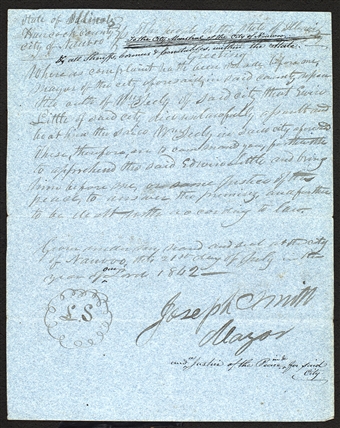 State of Illinois
Hancock County
City of Nauvoo
To the City Marshal of the City of Nauvoo
& all Sheriffs coroners & Constables, within the State.
Whereas complaint hath been made before me,
Mayor of the city aforesaid in said county upon
the oath of Wm of said city that Edwin
Little of said city did unlawfully assault and
beat him the said Wm in said city aforesaid
These, therefore, are to command you, forthwith
to apprehend the said Edwin Little and bring
him before me, or some Justice of the
peace, to answer the premises, and further
to be dealt with according to law.
Given under my hand and seal at the city
of Nauvoo, this 21st day of July in the
year of our Lord 1842
L.S
Joseph Smith
Mayor
and Justice of the Peace, for said
City